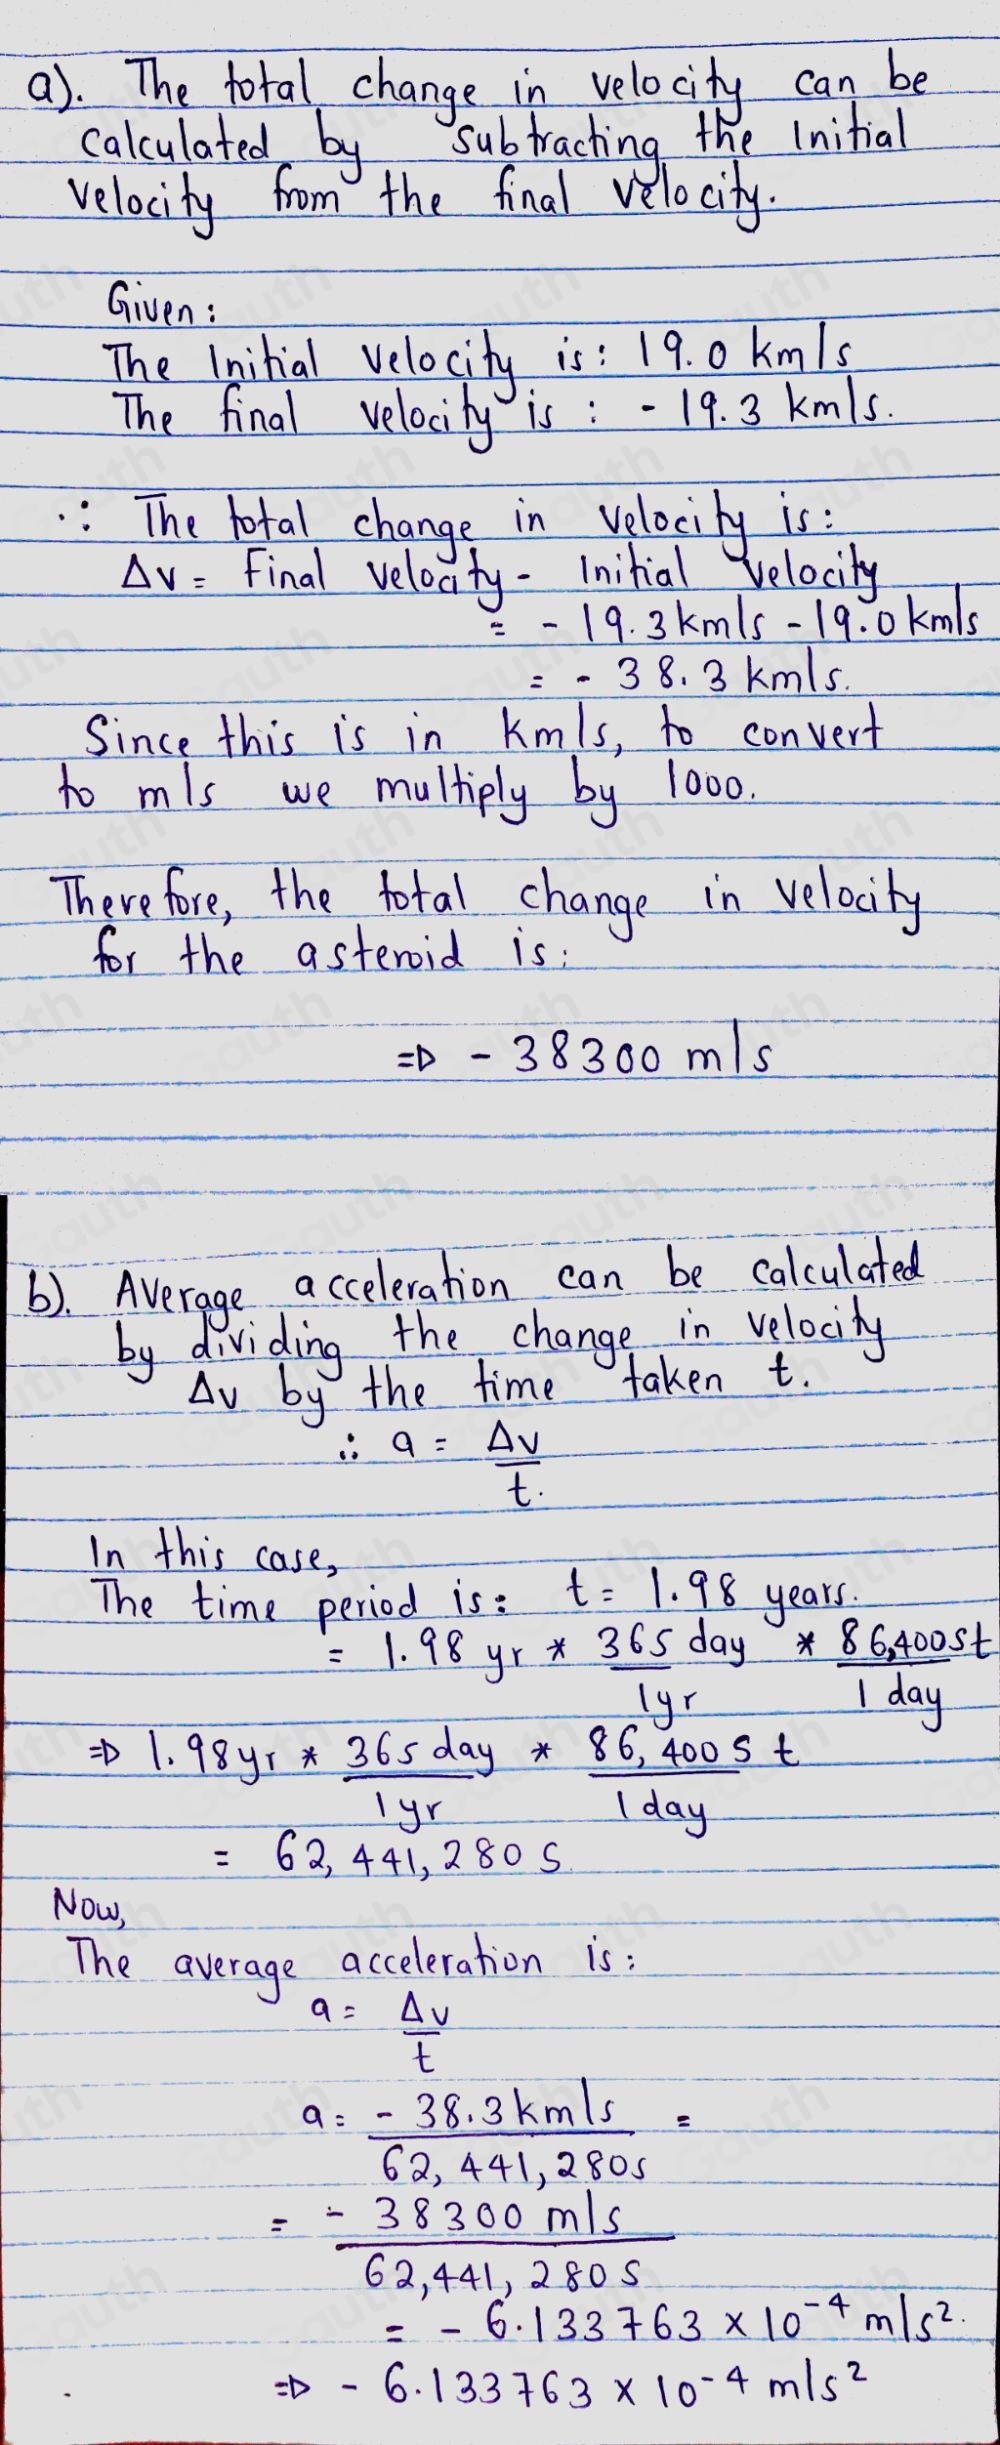 a). The total change in velocity can be
calculated by subtracting the Initial
velocity from the final velocity.
Given:
The Initial velocity is: 19.0 km/s
The final velocity is : - 19.3 km/s.
∴ The total change in velocity is:
Δv = Final velocity - Initial velocity
= - 19.3 km/s - 19.0 km/s
= - 38.3 km/s.
Since this is in km/s, to convert
to m/s we multiply by 1000.
Therefore, the total change in velocity
for the asteroid is:
⇒ - 38300 m/s
b). Average acceleration can be calculated
by dividing the change in velocity
Δv by the time taken t.
∴ a = Δv
t.
In this case,
The time period is: t = 1.98 years.
= 1.98 yr * 365 day * 86,400 s t
1yr 1 day
⇒ 1.98 yr * 365 day * 86,400 s t
1 yr 1 day
= 62,441,280 s
Now,
The average acceleration is:
a = Δv
t
a = - 38.3 km/s =
62,441,280s
= - 38300 m/s
62,441,280 s
= - 6.133763 x 10⁻⁴ m/s².
⇒ - 6.133763 x 10⁻⁴ m/s²